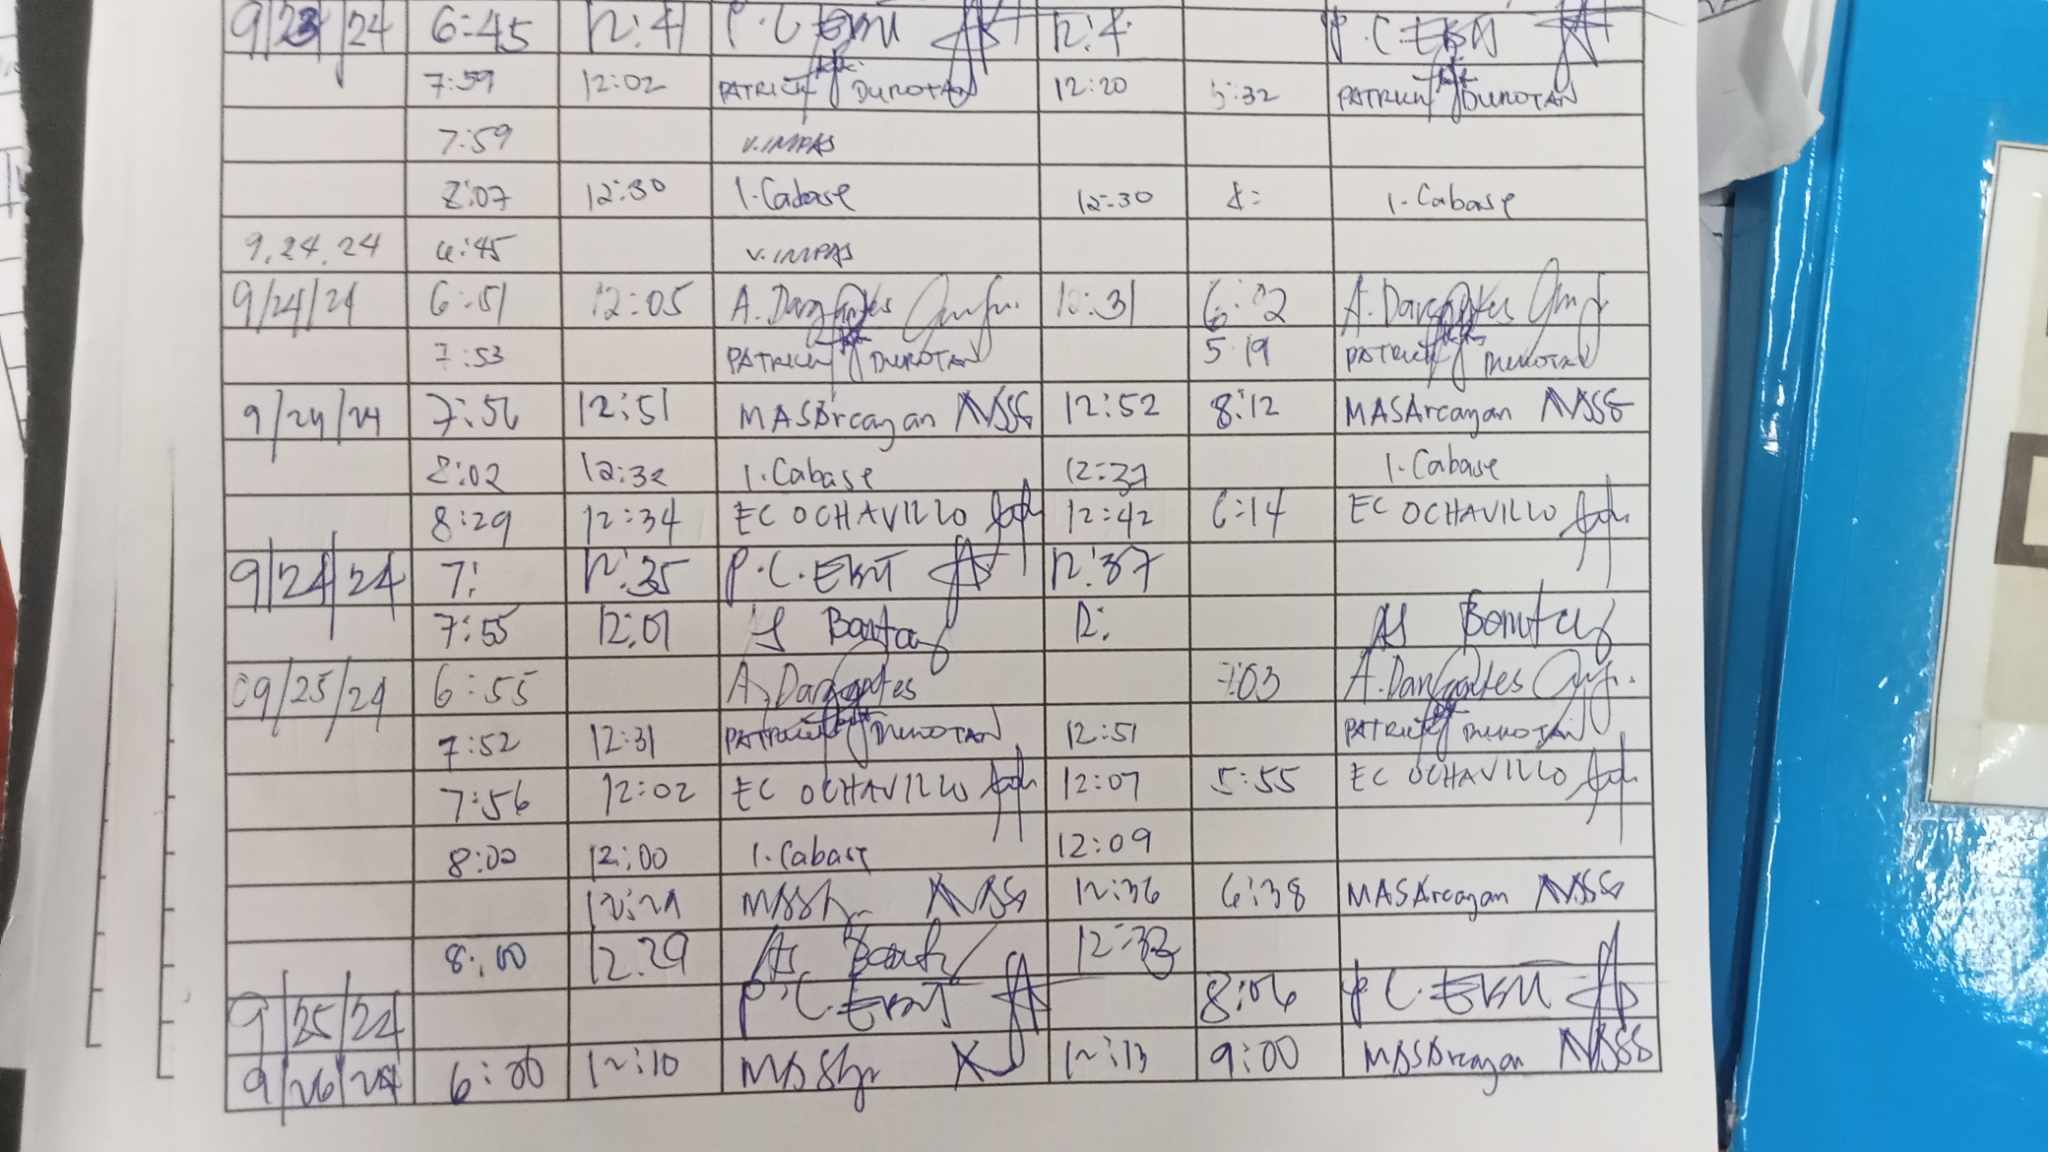 9/23/24 6:45 12:41 P.C. EBIT 12:4 P.C. EBIT
7:59 12:02 PATRICK DUROTAN 12:20 5:32 PATRICK DUROTAN
7:59 V. IMPAS
8:07 12:30 I. Cabase 12:30 8: I. Cabase
9.24.24 6:45 V. IMPAS
9/24/24 6:51 12:05 A. Dargantes 12:31 6:02 A. Dargantes
7:53 PATRICK DUROTAN 5:19 PATRICK DUROTAN
9/24/24 7:56 12:51 MASArcayan 12:52 8:12 MASArcayan
8:02 12:32 I. Cabase 12:37 I. Cabase
8:29 12:34 EC OCHAVILLO 12:42 6:14 EC OCHAVILLO
9/24/24 7: 12:35 P.C. EBIT 12:37
7:55 12:01 12:
09/25/24 6:55 A. Dargantes 7:03 A. Dargantes
7:52 12:31 PATRICK DUROTAN 12:51 PATRICK DUROTAN
7:56 12:02 EC OCHAVILLO 12:07 5:55 EC OCHAVILLO
8:00 12:00 I. Cabase 12:09
12:36 6:38 MASArcayan
8:00 12:29 12:33
9/25/24 P.C. EBIT 8:06 P.C. EBIT
9/26/24 6:00 12:10 12:13 9:00 MASArcayan